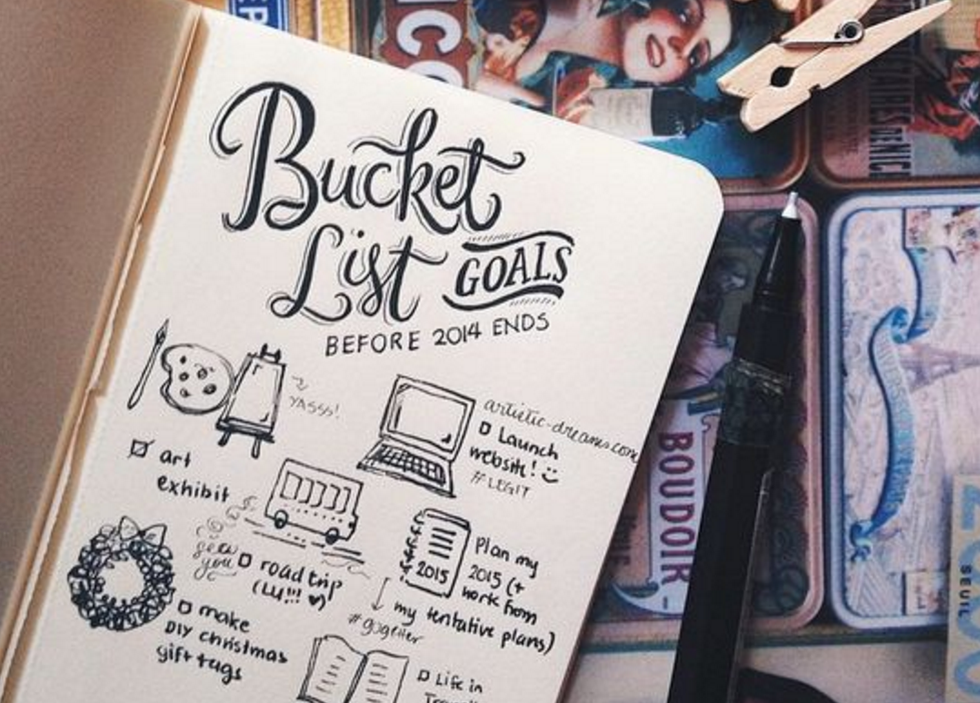 Bucket
List GOALS
BEFORE 2014 ENDS
YASSS!
art
exhibit
artistic-dreams.com
Launch
website!
#LEGIT
see
you
road trip
(LU!!!
2015
Plan my
2015 (+
work from
my tentative plans)
#gogetter
make
DIY christmas
gift tags
Life in
BOUDOIR